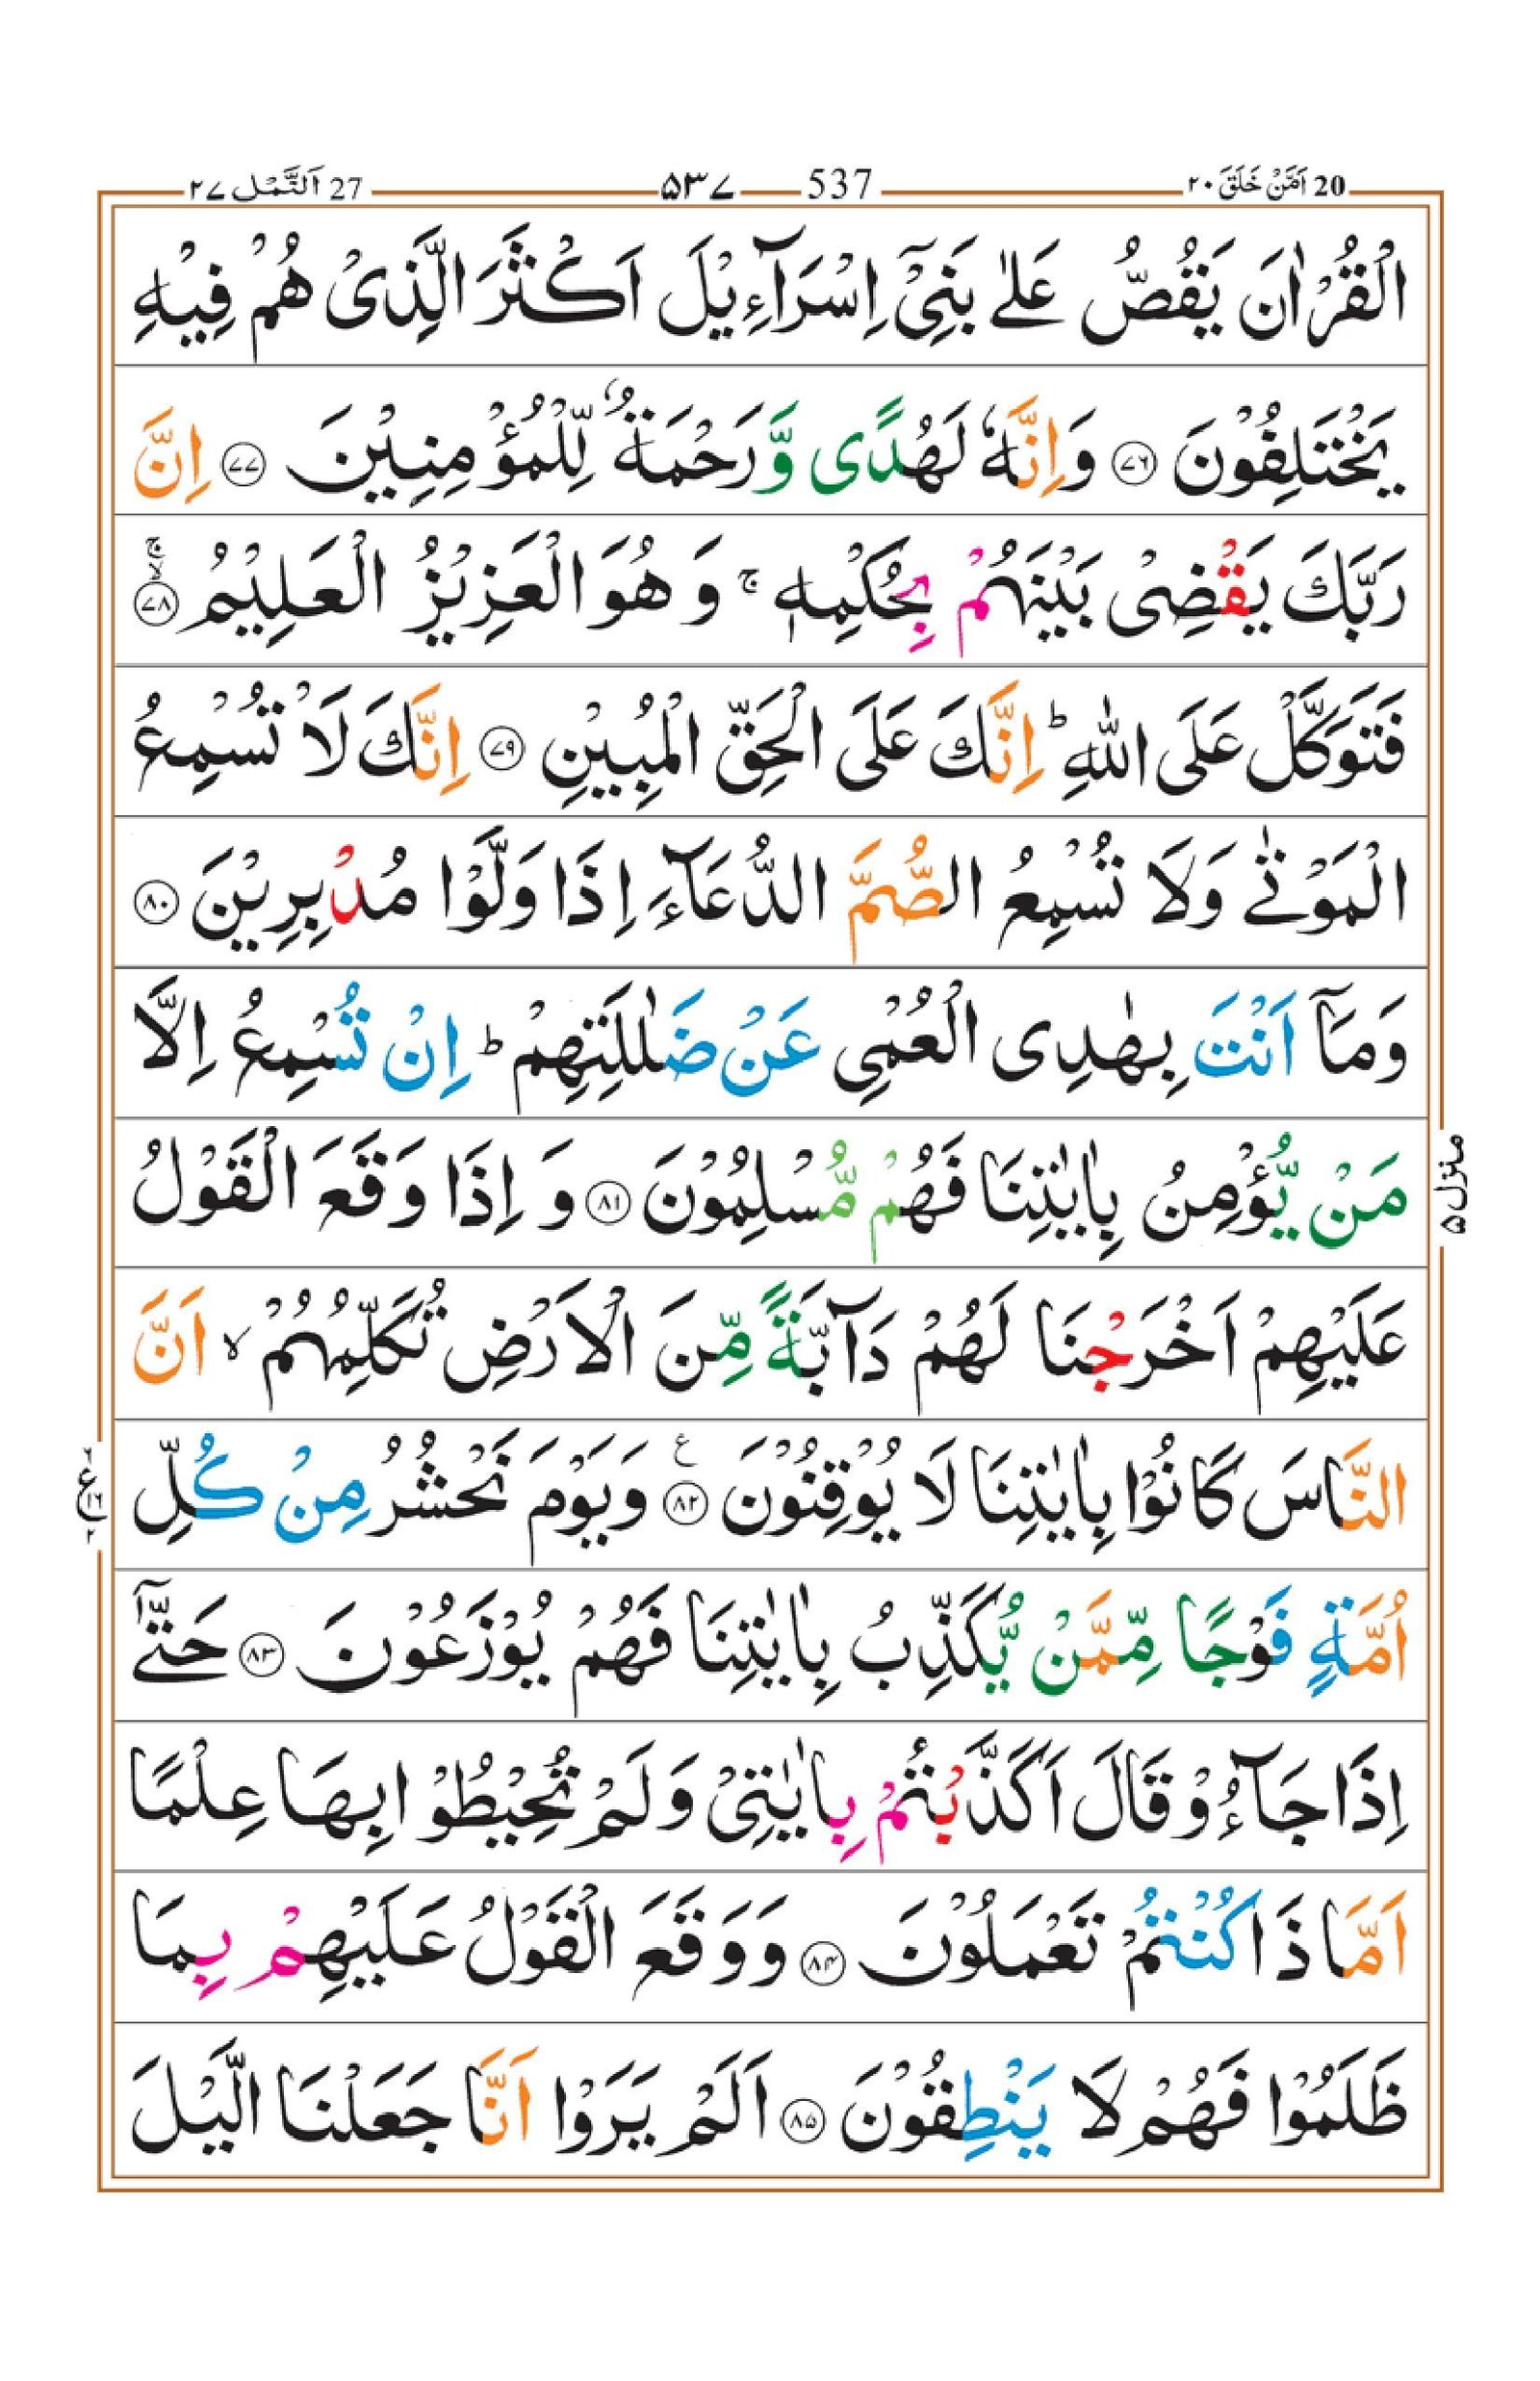 20 اَمَّنْ خَلَقَ ٢٠ 537 ۵۳۷ 27 اَلنَّمْل ٢٧
الْقُرْاٰنَ يَقُصُّ عَلٰى بَنِىْٓ اِسْرَآءِيْلَ اَكْثَرَ الَّذِىْ هُمْ فِيْهِ
يَخْتَلِفُوْنَ ﴿۷۶﴾ وَاِنَّهٗ لَهُدًى وَّرَحْمَةٌ لِّلْمُؤْمِنِيْنَ ﴿۷۷﴾ اِنَّ
رَبَّكَ يَقْضِىْ بَيْنَهُمْ بِحُكْمِهٖ ۚ وَهُوَ الْعَزِيْزُ الْعَلِيْمُ ۙۚ ﴿۷۸﴾
فَتَوَكَّلْ عَلَى اللّٰهِ ؕ اِنَّكَ عَلَى الْحَقِّ الْمُبِيْنِ ﴿۷۹﴾ اِنَّكَ لَا تُسْمِعُ
الْمَوْتٰى وَلَا تُسْمِعُ الصُّمَّ الدُّعَآءَ اِذَا وَلَّوْا مُدْبِرِيْنَ ﴿۸۰﴾
وَمَآ اَنْتَ بِهٰدِى الْعُمْىِ عَنْ ضَلٰلَتِهِمْ ؕ اِنْ تُسْمِعُ اِلَّا
مَنْ يُّؤْمِنُ بِاٰيٰتِنَا فَهُمْ مُّسْلِمُوْنَ ﴿۸۱﴾ وَ اِذَا وَقَعَ الْقَوْلُ
عَلَيْهِمْ اَخْرَجْنَا لَهُمْ دَآبَّةً مِّنَ الْاَرْضِ تُكَلِّمُهُمْ ۙ اَنَّ
النَّاسَ كَانُوْا بِاٰيٰتِنَا لَا يُوْقِنُوْنَ ﴿۸۲﴾ ع وَيَوْمَ نَحْشُرُ مِنْ كُلِّ
اُمَّةٍ فَوْجًا مِّمَّنْ يُّكَذِّبُ بِاٰيٰتِنَا فَهُمْ يُوْزَعُوْنَ ﴿۸۳﴾ حَتّٰٓى
اِذَا جَآءُوْ قَالَ اَكَذَّبْتُمْ بِاٰيٰتِىْ وَلَمْ تُحِيْطُوْا بِهَا عِلْمًا
اَمَّا ذَا كُنْتُمْ تَعْمَلُوْنَ ﴿۸۴﴾ وَوَقَعَ الْقَوْلُ عَلَيْهِمْ بِمَا
ظَلَمُوْا فَهُمْ لَا يَنْطِقُوْنَ ﴿۸۵﴾ اَلَمْ يَرَوْا اَنَّا جَعَلْنَا الَّيْلَ
منزل ۵